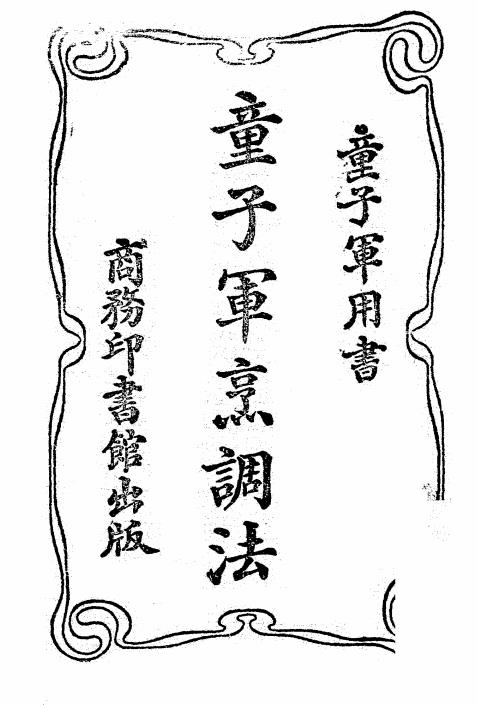 童子軍用書
童子軍烹調法
商務印書館出版